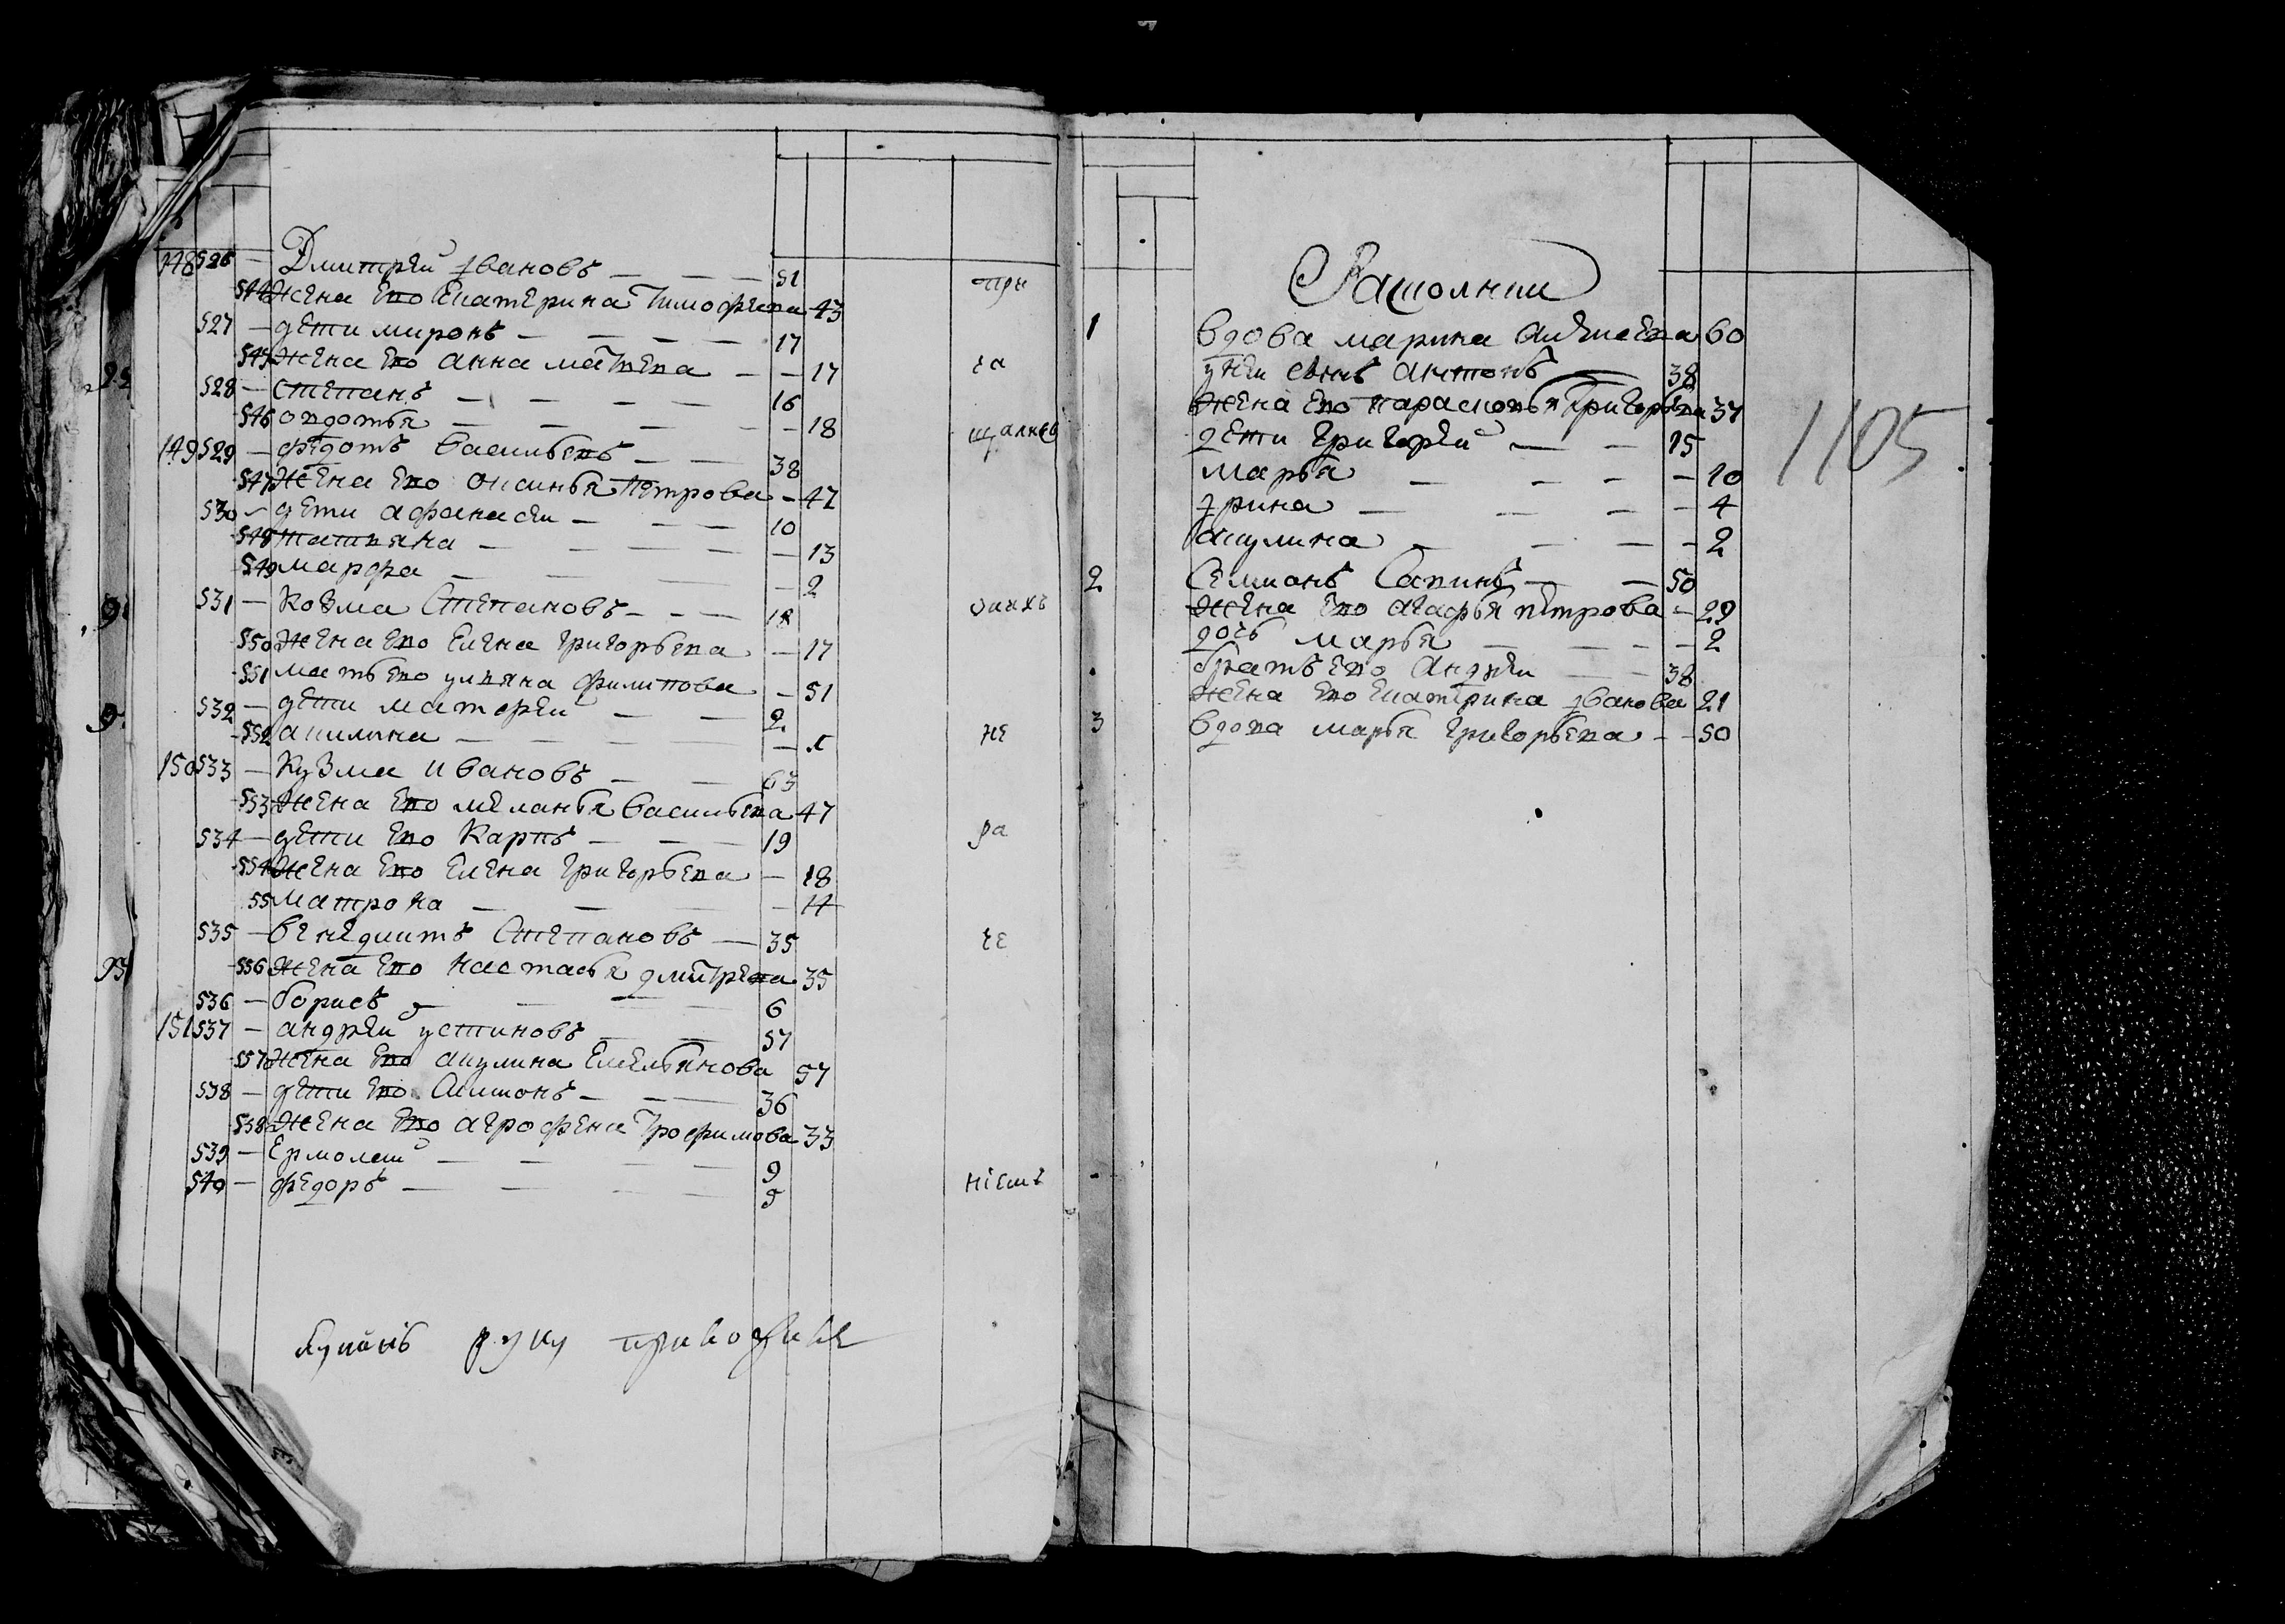 148 526 — Дмитрей Ивановъ — — — 51
544 Жена ево Екатерина Тимофеева 43
527 — дети миронъ — — — — 17
545 Жена ево анна матвева — — 17
528 — степанъ — — — — 16
546 овдотья — — — — — 18
149 529 — федотъ васильевъ — — 38
547 Жена ево оксинья петрова — 47
530 — дети афанасеи — — — 10
548 татьяна — — — — — 13
549 марфа — — — — 2
531 — Козма Степановъ — — — 18
550 Жена ево Елена григорьева — 17
551 мать ево ульяна филипова — 51
532 — дети матфеи — — 2
552 акилина — — — — —
150 533 — Кузма ивановъ — — 63
553 Жена ево меланья васильева 47
534 — дети ево Карпъ — — — 19
554 Жена ево Елена григорьева — 18
55 матрона — — — — 14
535 — венедиктъ Степановъ — 35
556 Жена ево настасья дмитрева 35
536 — борисъ — — — — 6
151 537 — андреи устиновъ — — 57
557 Жена ево акулина Емельянова 57
538 — дети ево Антонъ — — 36
538 Жена ево агрофена Трофимова 33
539 — Ермолаи — — — — 9
540 — федоръ — — — — 5
руку приложилъ
при
га
щалкъ
не
ра
ге
ніемъ
Расколники
1 вдова марина алексеева 60
у неи сынъ антонъ — 38
Жена ево парасковья григорьева 37
дети григореи — — 15
марья — — — — 10
ирина — — — — 4
акулина — — — — 2
2 Семионъ Савинъ — — 50
Жена ево агафья петрова — 29
дочь марья — — — — 2
братъ ево андреи — — 38
Жена ево Екатерина Иванова 21
3 вдова марья григорьева — — 50
1105